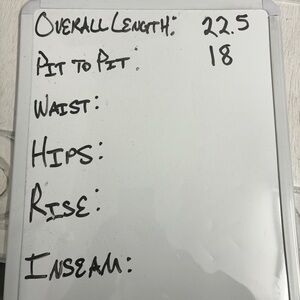 OVERALL LENGTH: 22.5
PIT TO PIT: 18
WAIST:
HIPS:
RISE:
INSEAM: